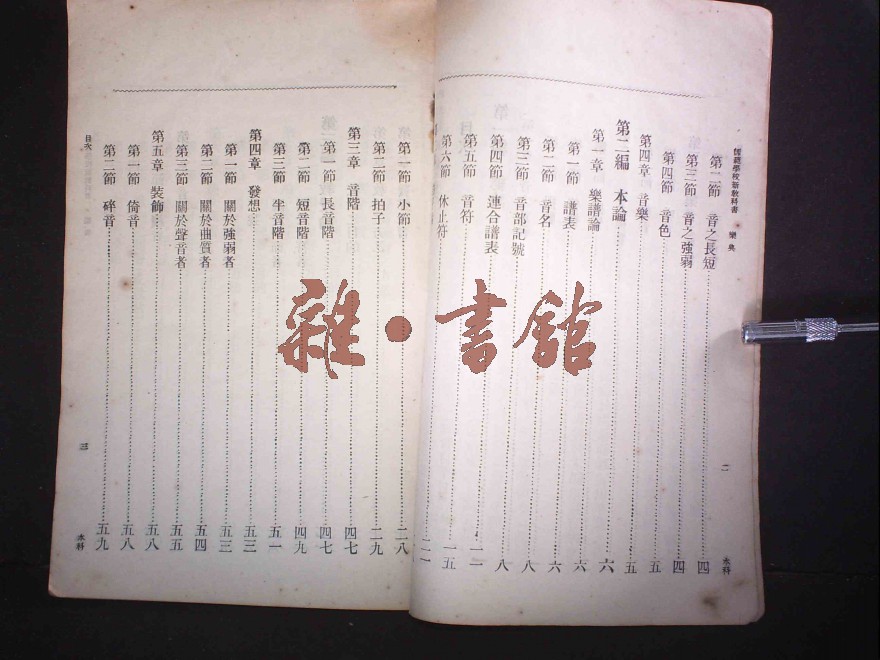 師範學校新教科書 樂典
二
本科
第二節 音之長短 四
第三節 音之強弱 四
第四節 音色 五
第四章 音樂 五
第二編 本論 六
第一章 樂譜論 六
第一節 譜表 六
第二節 音名 八
第三節 音部記號 八
第四節 連合譜表
第五節 音符
第六節 休止符
第一節 小節 二八
第二節 拍子 二九
第三章 音階 四七
第一節 長音階 四七
第二節 短音階 四九
第三節 半音階 五一
第四章 發想 五三
第一節 關於強弱者 五三
第二節 關於曲質者 五四
第三節 關於聲音者 五五
第五章 裝飾 五八
第一節 倚音 五八
第二節 碎音 五九
目次
三
本科
雜·書館